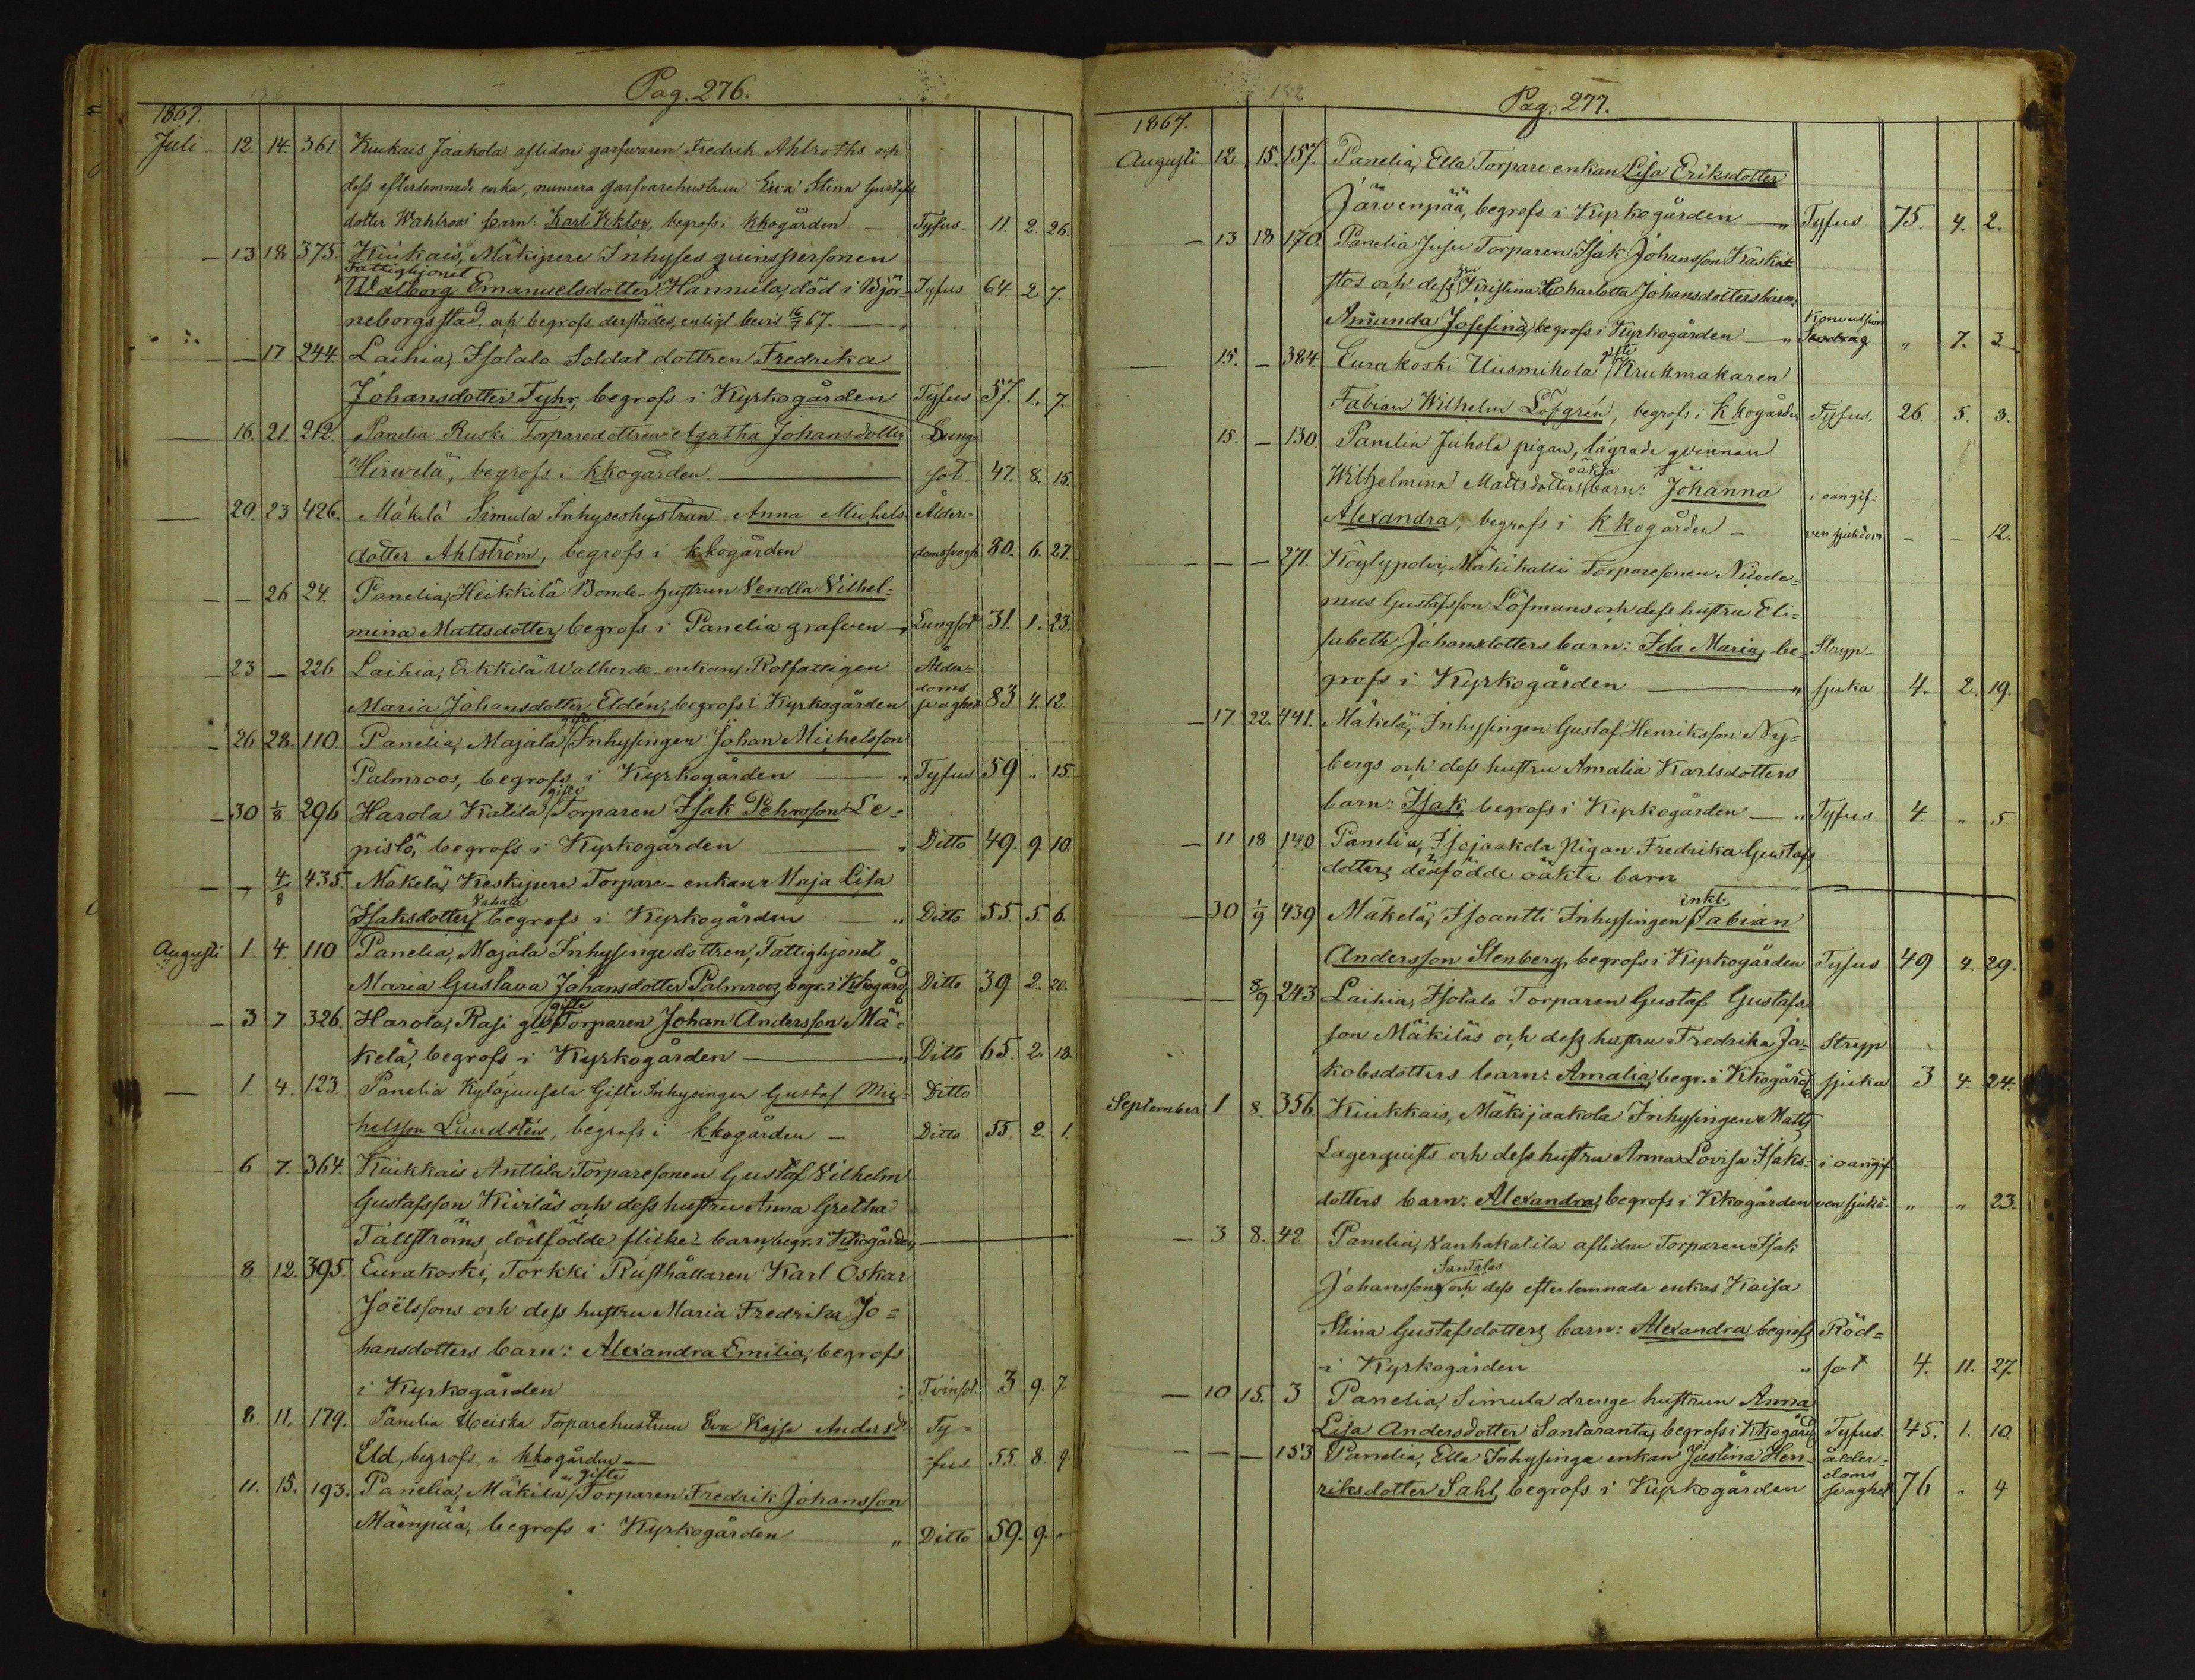 Pag. 276.
1867.
Juli 12. 14. 361. Kiukais Jaakola aflidne garfwaren Fredrik Ahlroths och
dess efterlemnade enka, numera garfvarehustrun Eva Stina Gustafs
dotter Wahlroos' barn Karl Viktor, begrofs i kkogården. Tyfus 11. 2. 26.
— 13 18 375. Kiukais, Mäkipere Inhyses qvinspersonen
Fattighjonet
Walborg Emanuelsdotter Hannula, död i Björ- Tyfus 64. 2 7.
neborgs stad, och begrofs derstädes, enligt bevis 16/7 67.
— 17 244. Laihia, Isotalo Soldat dottren Fredrika
Johansdotter Fyhr, begrofs i Kyrkogården Tyfus 57. 1. 7.
— 16. 21. 212. Panelia Ruski Torparedottren Agatha Johansdotter Lung-
Hirwelä, begrofs i kkogården. sot. 47. 8. 15.
— 20. 23 426. Mäkelä Simula Inhyseshustrun Anna Michels- Ålder-
dotter Ahlström, begrofs i kkogården domsvagh 80. 6. 27.
— — 26 24. Panelia, Heikkilä Bonde-hustrun Vendla Vilhel-
mina Mattsdotter, begrofs i Panelia grafven Lungsot 31. 1. 23.
— 23 — 226 Laihia, Erkkilä Walherde-enkan, Rotfattigen Ålder-
doms
Maria Johansdotter Eldén, begrofs i Kyrkogården svaghet 83 4. 12.
gifte
— 26 28. 110. Panelia, Majala Inhysingen Johan Michelsson
Palmroos, begrofs i Kyrkogården " Tyfus 59 " 15.
gifte
— 30 1/8 296 Harola Katila Torparen Isak Pehrsson Le-
pistö, begrofs i Kyrkogården " Ditto 49. 9 10.
— " 4/8 435. Mäkelä, Keskipere Torpare-enkan Maja Lisa
Vahala
Isaksdotter, begrofs i Kyrkogården " Ditto 55. 5. 6.
Augusti 1. 4. 110 Panelia, Majala Inhysinge dottren, Fattighjonet
Maria Gustava Johansdotter Palmroos, begr. i Kkogård Ditto 39 2. 20.
gifte
— 3 7 326. Harola, Rasi Torparen Johan Andersson Mä-
kelä, begrofs i Kyrkogården " Ditto 65. 2. 18.
— 1. 4. 123. Panelia Kyläjuusela Gifte Inhysingen Gustaf Mic- Ditto
helsson Lundstén, begrofs i kkogården — Ditto 55. 2. 1.
6 7. 364. Kiukkais Anttila Torparesonen Gustaf Vilhelm
Gustafsson Kiviläs och dess hustru Anna Gretha
Tallströms, dödfödde flicke-barn, begr. i Kkogården,
8 12. 395. Eurakoski, Torkki Rusthållaren Karl Oskar
Joëlssons och dess hustru Maria Fredrika Jo-
hansdotters barn: Alexandra Emilia, begrofs
i Kyrkogården Tvinsot. 3 9. 7.
8. 11. 179. Panelia Uciska Torparehustrun Eva Kajsa Andersd. Ty-
Eld, begrofs i kkogården — fus. 55. 8. 9.
gifte
11. 15. 193. Panelia, Mäkilä Torparen Fredrik Johansson
Mäenpää, begrofs i Kyrkogården " Ditto 59. 9. "
182
Pag. 277.
1867.
Augusti 12 15. 157. Panelia, Ella Torpare enkan Lisa Eriksdotter
Järvenpää, begrofs i Kyrkogården " Tyfus 75. 4. 2.
— 13 18 170. Panelia Juju Torparen Isak Johansson Kaskis-
hu
tos och dess Kristina Charlotta Johansdotters barn:
Konvulsion
Amanda Josefina, begrofs i Kyrkogården " " 7. 3.
gifte
— 15. — 384. Eurakoski Uusmikola Krukmakaren
Fabian Wilhelm Löfgrén, begrofs i kkogården Tyfus. 26. 5. 3.
15. — 130. Panelia Juhola pigan, lägrade qvinnan
oäkta
Wilhelmina Mattsdotters barn: Johanna i oangif-
Alexandra, begrofs i kkogården — ven sjukdom — — 12.
— — — 271. Köylypolvi, Mäkikalli Torparesonen Nicode-
mus Gustafsson Löfmans och dess hustru Eli-
sabeth Johansdotters barn: Ida Maria, be- Stryp-
grofs i Kyrkogården " sjuka 4. 2. 19.
— 17. 22. 441. Mäkelä, Inhysingen Gustaf Henriksson Ny-
bergs och dess hustru Amalia Karlsdotters
barn: Isak, begrofs i Kyrkogården " Tyfus 4. " 5.
— 11 18 140 Panelia, Isojaakola Pigan Fredrika Gustafs
dotters dödfödde oäkta barn
inkl.
— 30 1/9 439 Mäkelä, Isoantti Inhysingen Fabian
Andersson Stenberg, begrofs i Kyrkogården Tyfus 49 4. 29.
— — 8/9 243 Laihia, Isotalo Torparen Gustaf Gustafs-
son Mäkiläs och dess hustru Fredrika Ja- Stryp
kobsdotters barn: Amalia, begr. i Kkogård sjuka 3 4. 24.
September 1 8. 356. Kiukkais, Mäkijaakola Inhysingen Matts
Lagerquists och dess hustru Anna Lovisa Isaks- i oangif
dotters barn: Alexandra, begrofs i Kkogården ven sjukd. " " 23.
— 3 8. 42 Panelia, Vanhakatila aflidne Torparen Isak
Santalas
Johanssons och dess efterlemnade enkas Kaisa
Stina Gustafsdotters barn: Alexandra, begrofs Röd-
i Kyrkogården " sot 4. 11. 27.
— 10 15. 3 Panelia, Simula drenge hustrun Anna
Lisa Andersdotter Santaranta, begrofs i Kkogård Tyfus. 45. 1. 10.
— — — 153 Panelia, Ella Inhysinge enkan Justina Hen- ålder-
doms
riksdotter Sahl, begrofs i Kyrkogården svaghet 76 " 4